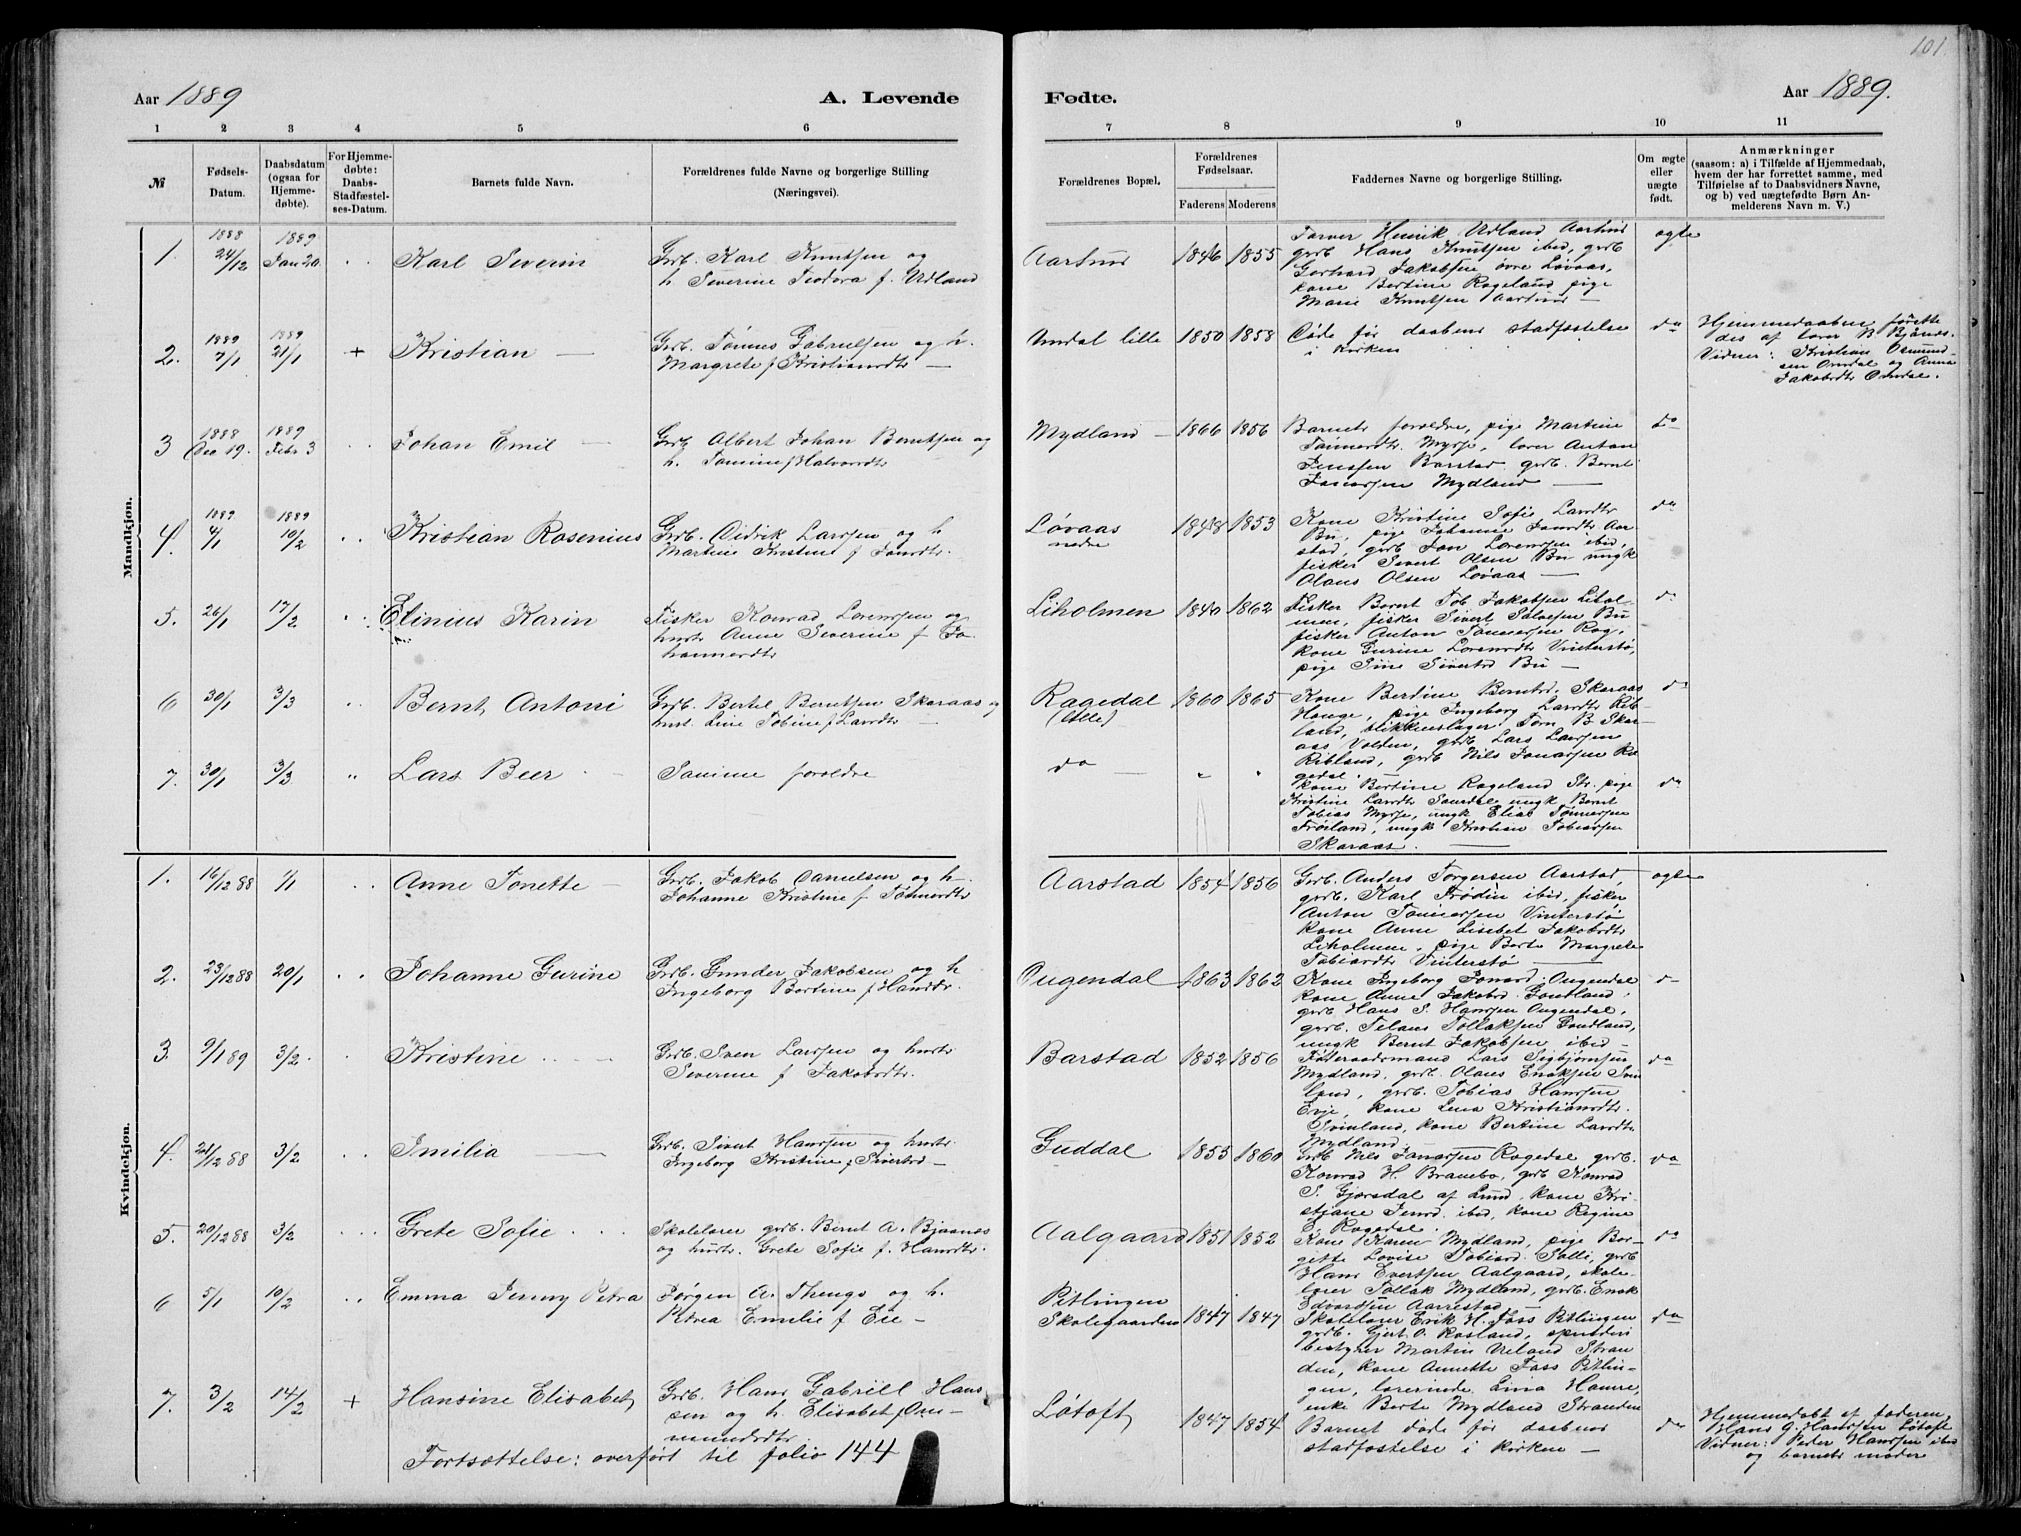 101.
Aar 1889
A. Levende
Fødte.
Aar 1889.
1 2 3 4 5 6 7 8 9 10 11
№
Fødsels-
Datum.
Daabsdatum
(ogsaa for
Hjemme-
døbte).
For Hjemme-
døbte:
Daabs-
Stadfæstel-
ses-Datum.
Barnets fulde Navn.
Forældrenes fulde Navne og borgerlige Stilling
(Næringsvei).
Forældrenes Bopæl.
Forældrenes
Fødselsaar.
Faderens Moderens
Faddernes Navne og borgerlige Stilling.
Om ægte
eller
uægte
født.
Anmærkninger
(saasom: a) i Tilfælde af Hjemmedaab,
hvem der har forrettet samme, med
Tilføielse af to Daabsvidners Navne,
og b) ved uægtefødte Børn An-
melderens Navn m. V.)
Mandkjøn.
1. 1888 24/12 1889 Jan 20. Karl Severin
Grdb. Karl Knutsen og
h. Severine Teodora f. Udland
Aarstad 1846 1855
Farver Henrik Udland Aarstad
grdb Hans Knutsen ibid, grdb
Gerhard Jakobsen øvre Løvaas,
kone Bertine Rageland pige
Marie Knutsen Aarstad —
ægte
2. 1889 7/1 1889 21/1 + Kristian —
Grdb. Tønnes Gabrielsen og h.
Margrete f Kristiansdtr —
Omdal lille 1850 1858
Døde før daabens stadfæstelse
i kirken
do
Hjemmedaaben forette
des af lærer B. Bjånes.
Vidner: Kristian Osmund
sen Omdal og Anna
Jakobsdtr Omdal.
3 1888 Dec 19. 1889 Febr 3 Johan Emil —
Grdb Albert Johan Berntsen og
h. Tomine f Halvorsdtr
Mydland — 1866 1856
Barnets forældre, pige Martine
Tønnesdtr. Myrse, lærer Anton
Jenssen Barstad grdb. Bernt
Jonassen Mydland —
do
4. 1889 4/1 1889 10/2 Kristian Rosenius
Grdb. Didrik Larssen og h
Martine Kristine f Jansdtr.
Løvaas
nedre
1848 1853
Kone Kristine Sofie Larsdtr
Bu, pige Johanne Jansdtr Aar
stad, grdb Jan Lorentsen ibid,
fisker Sivert Olsen Bu ungk
Olaus Olsen Løvaas —
do
5. 26/1 17/2 Elinius Karin
Fisker Konrad Lorentsen og
hustr Anne Severine f Jo
hannesdtr
Liholmen 1840 1862
Fisker Bernt Tob Jakobsen Lihol-
men, fisker Sivert Salvesen Bu
fisker Anton Tønnessen Rog,
kone Gurine Lorensdtr Vinterstø,
pige Sine Sivertsd Bu —
do
6 30/1 3/3 Bernt Antoni
Grdb. Bertel Berntsen Skaraas og
hust. Line Tobine f Larsdtr —
Ragedal
(lille)
1860 1865
Kone Bertine Berntsd. Skaraas
Hauge, pige Ingeborg Larsdtr Rib
land, blikkenslager Torn B. Skar-
aas Volden, grdb Lars Larssen
Ribland, grdb Nils Jonassen Ra
gedal.
do
7. 30/1 3/3 " Lars Beer
Samme forældre
do — " "
kone Bertine Rageland Str. pige
Kristine Larsdtr Omdal ungk Bernt
Tobias Myrse, ungk Elias Tønnessen
Frøiland, ungk Kristian Tobiassen
Skaraas. —
do
Kvindekjøn.
1. 16/12 88 1/1 Anne Tonette —
Grdb. Jakob Danielsen og h.
Johanne Kristine f Tønnesdtr
Aarstad 1854 1856
Grdb. Anders Torgersen Aarstad,
grdb. Karl Frødin ibid, fisker
Anton Tønnessen Vinterstø
kone Anne Lisebet Jakobsdtr
Liholmen, pige Berte Margrete
Tobiasdtr Vinterstø —
ægte
2. 23/12 88 20/1 Johanne Gurine
Grdb. Gunder Jakobsen og h
Ingeborg Bertine f Hansdr.
Ougendal 1863 1862
Kone Ingeborg Jonasd. Ougendal
kone Anne Jakobsd. Goudland,
grdb Hans S. Hanssen Ougendal,
grdb. Telaus Tollaksen Goudland,
ungk Bernt Jakobsen ibid —
d—
3. 9/1 89 3/2. Kristine
Grdb. Sven Larssen og hustr
Severine f Jakobsdtr.
Barstad 1852 1856
Føderaadsmand Lars Sigbjørnsen
Mydland, grdb. Olaus Enoksen Svin
land, grdb. Tobias Hanssen
Evje, kone Lena Kristiansdtr.
Svinland, kone Bertine Larsdtr
Mydland. —
do
4. 21/12 88 3/2 Emilia —
Grdb. Sivert Hanssen og hustr.
Ingeborg Kristine f Sivertsd —
Guddal 1855 1860
Grdb Nils Jonassen Ragedal grdb.
Konrad H. Brambo, grdb Konrad
S. Gjersdal af Lund, kone Kri-
stiane Jensd. ibid, kone Regine
E. Ragedal.
do
5. 20/12 88 3/2 Grete Sofie
Skolelærer grdb. Bernt A. Bjaanes
og hustr. Grete Sofie f. Hansdtr.
Aalgaard 1851 1852
Kone Karen Mydland, pige Bor-
gitte Lovise Tobiasd. Salte, grdb
Hans Evertsen Aalgaard, skole-
lærer Tollak Mydland, grdb. Enok
Edvardsen Aarrestad
do
6 5/1 10/2 Emma Jenny Petra
Jørgen A. Thengs og h.
Petrea Emilie f Eie —
Pitlingen
Skolegaarden 1847 1847
Skolelærer Erik H. Foss Pitlingen
grdb. Gjert O. Rosland, sprutderi
bestyrer Martin Ueland Stran
den, kone Annette Foss Pitlin-
gen, lærerinde Lina Hamre,
enke Berte Mydland Stranden
do
7. 3/2 14/2 + Hansine Elisabet
Grdb. Hans Gabriell Hans
sen og h. Elisabet f Om-
mundsdtr
Løtoft 1847 1854
Barnet døde før daabens
stadfæstelse i kirken —
do
Hjemmedøbt af faderen
Hans G. Hanssen Løtoft
Vidner: Peder Hanssen ibid
og barnets moder
Fortsættelse: overført til folio 144